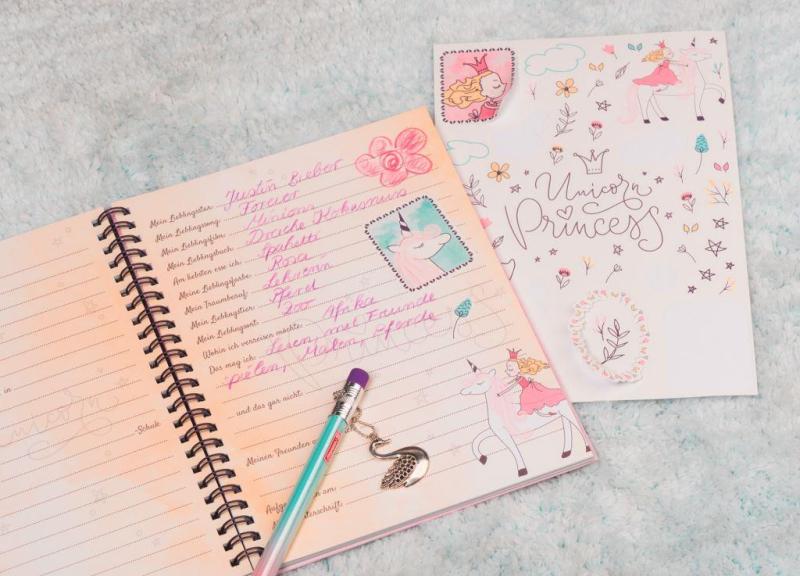 in
-Schule
Mein Lieblingsstar: Justin Bieber
Mein Lieblingssong: Forever
Mein Lieblingsfilm: Minions
Mein Lieblingsbuch: Drache Kokosnuss
Am liebsten esse ich: Spahetti
Meine Lieblingsfarbe: Rosa
Mein Traumberuf: Lehrerin
Mein Lieblingstier: Pferd
Mein Lieblingsort: Zoo
Wohin ich verreisen möchte: Afrika
Das mag ich: Lesen, mit Freunde
pielen, Malen, Pferde
und das gar nicht:
Meinen Freunden
am:
Unicorn
Princess